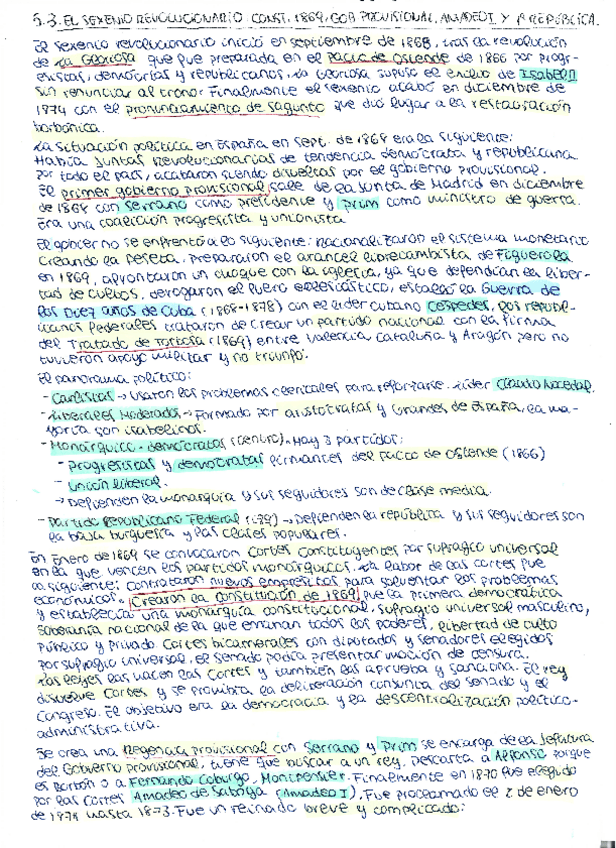 5.3. EL SEXENIO REVOLUCIONARIO. CONST. 1869. GOB PROVISIONAL, AMADEO I Y 1ª REPÚBLICA.
El sexenio revolucionario inició en septiembre de 1868, tras la revolución
de La Gloriosa que fue preparada en el Pacto de Ostende de 1866 por progr-
esistas, demócratas y republicanos. La Gloriosa supuso el exilio de Isabel II
sin renunciar al trono. Finalmente el sexenio acabó en diciembre de
1874 con el pronunciamiento de Sagunto que dió lugar a la restauración
borbónica.
La situación política en España en sept. de 1868 era la siguiente:
Había Juntas Revolucionarias de tendencia demócrata y republicana
por todo el país, acabaron siendo disueltas por el gobierno provisional.
El primer gobierno provisional sale de la Junta de Madrid en diciembre
de 1868 con Serrano como presidente y Prim como ministro de guerra.
Era una coalición progresista y unionista.
El gobierno se enfrentó a lo siguiente: nacionalizaron el sistema monetario
creando la peseta. Prepararon el arancel librecambista de Figuerola
en 1869, afrontaron un choque con la iglesia, ya que defendían la liber-
tad de cultos, derogaron el fuero eclesiástico, estalló la Guerra de
los Diez años de Cuba (1868-1878) con el líder cubano Céspedes, los republi-
canos Federales trataron de crear un partido nacional con la firma
del Tratado de Tortosa (1869) entre Valencia Cataluña y Aragón pero no
tuvieron apoyo militar y no triunfó.
El panorama político:
- Carlistas → Usaron los problemas clericales para reforzarse. Líder Cándido Nocedal.
- Liberales Moderados → Formado por aristócratas y Grandes de España, la ma-
yoría son isabelinos.
- Monárquico-demócratas (centro). Hay 3 partidos:
- Progresistas y demócratas firmantes del Pacto de Ostende (1866)
- Unión liberal.
→ Defienden la monarquía y sus seguidores son de clase media.
- Partido Republicano Federal (izq) → Defienden la república y sus seguidores son
la baja burguesía y las clases populares.
En Enero de 1869 se convocaron Cortes Constituyentes por sufragio universal
en la que vencen los partidos monárquicos. La labor de las cortes fue
la siguiente: Contrataron nuevos empréstitos para solventar los problemas
económicos. Crearon la Constitución de 1869, fue la primera democrática
y establecía una monarquía constitucional, sufragio universal masculino,
soberanía nacional de la que emanan todos los poderes, libertad de culto
público y privado. Cortes bicamerales con diputados y senadores elegidos
por sufragio universal, el senado podía presentar moción de censura.
Las leyes las hacen las Cortes y también las aprueba y sanciona. El rey
disuelve Cortes y se prohibía la deliberación conjunta del senado y el
Congreso. El objetivo era la democracia y la descentralización político-
administrativa.
Se crea una Regencia provisional con Serrano y Prim se encarga de la Jefatura
del Gobierno provisional, tiene que buscar a un rey. Descarta a Alfonso porque
es borbón o a Fernando Coburgo, Montpensier. Finalmente en 1870 fue elegido
por las Cortes Amadeo de Saboya (Amadeo I). Fue proclamado el 2 de enero
de 1871 hasta 1873. Fue un reinado breve y complicado: